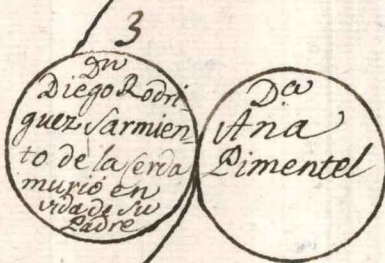 3
Dn
Diego Rodri-
guez Sarmien-
to de la Serda
murió en
vida de su
Padre
Da
Ana
Pimentel